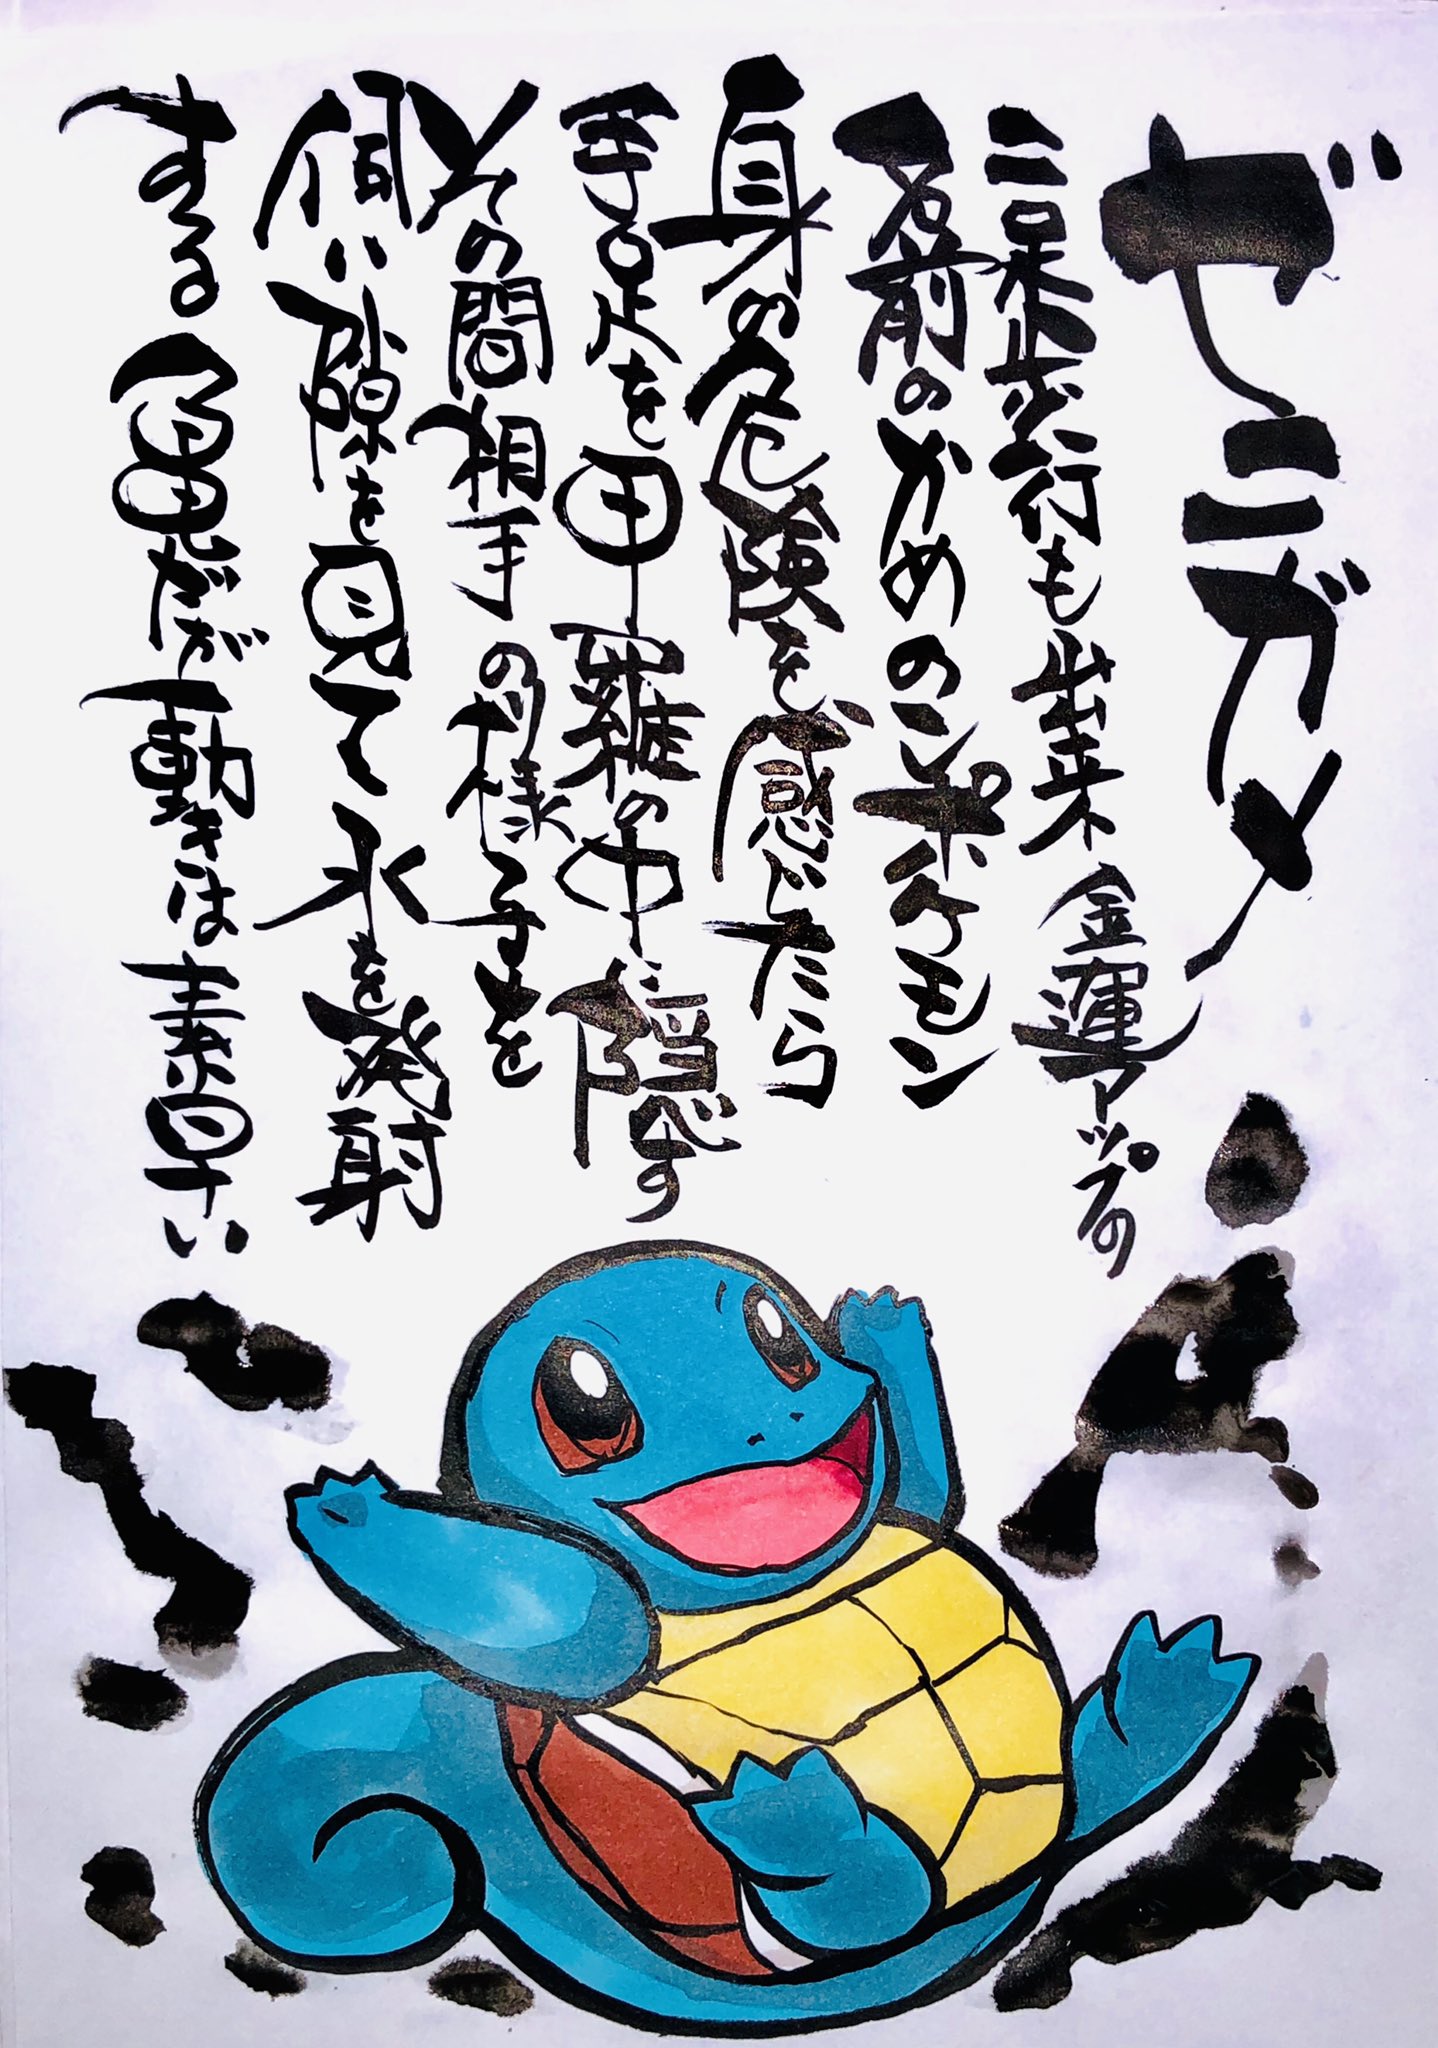 ゼニガメ
二足歩行も出来金運アップの
名前のかめのンポケモン
身の危険を感じたら
手足を甲羅の中に隠す
その間相手の様子を
伺い隙を見て水を発射
する亀だが動きは素早い